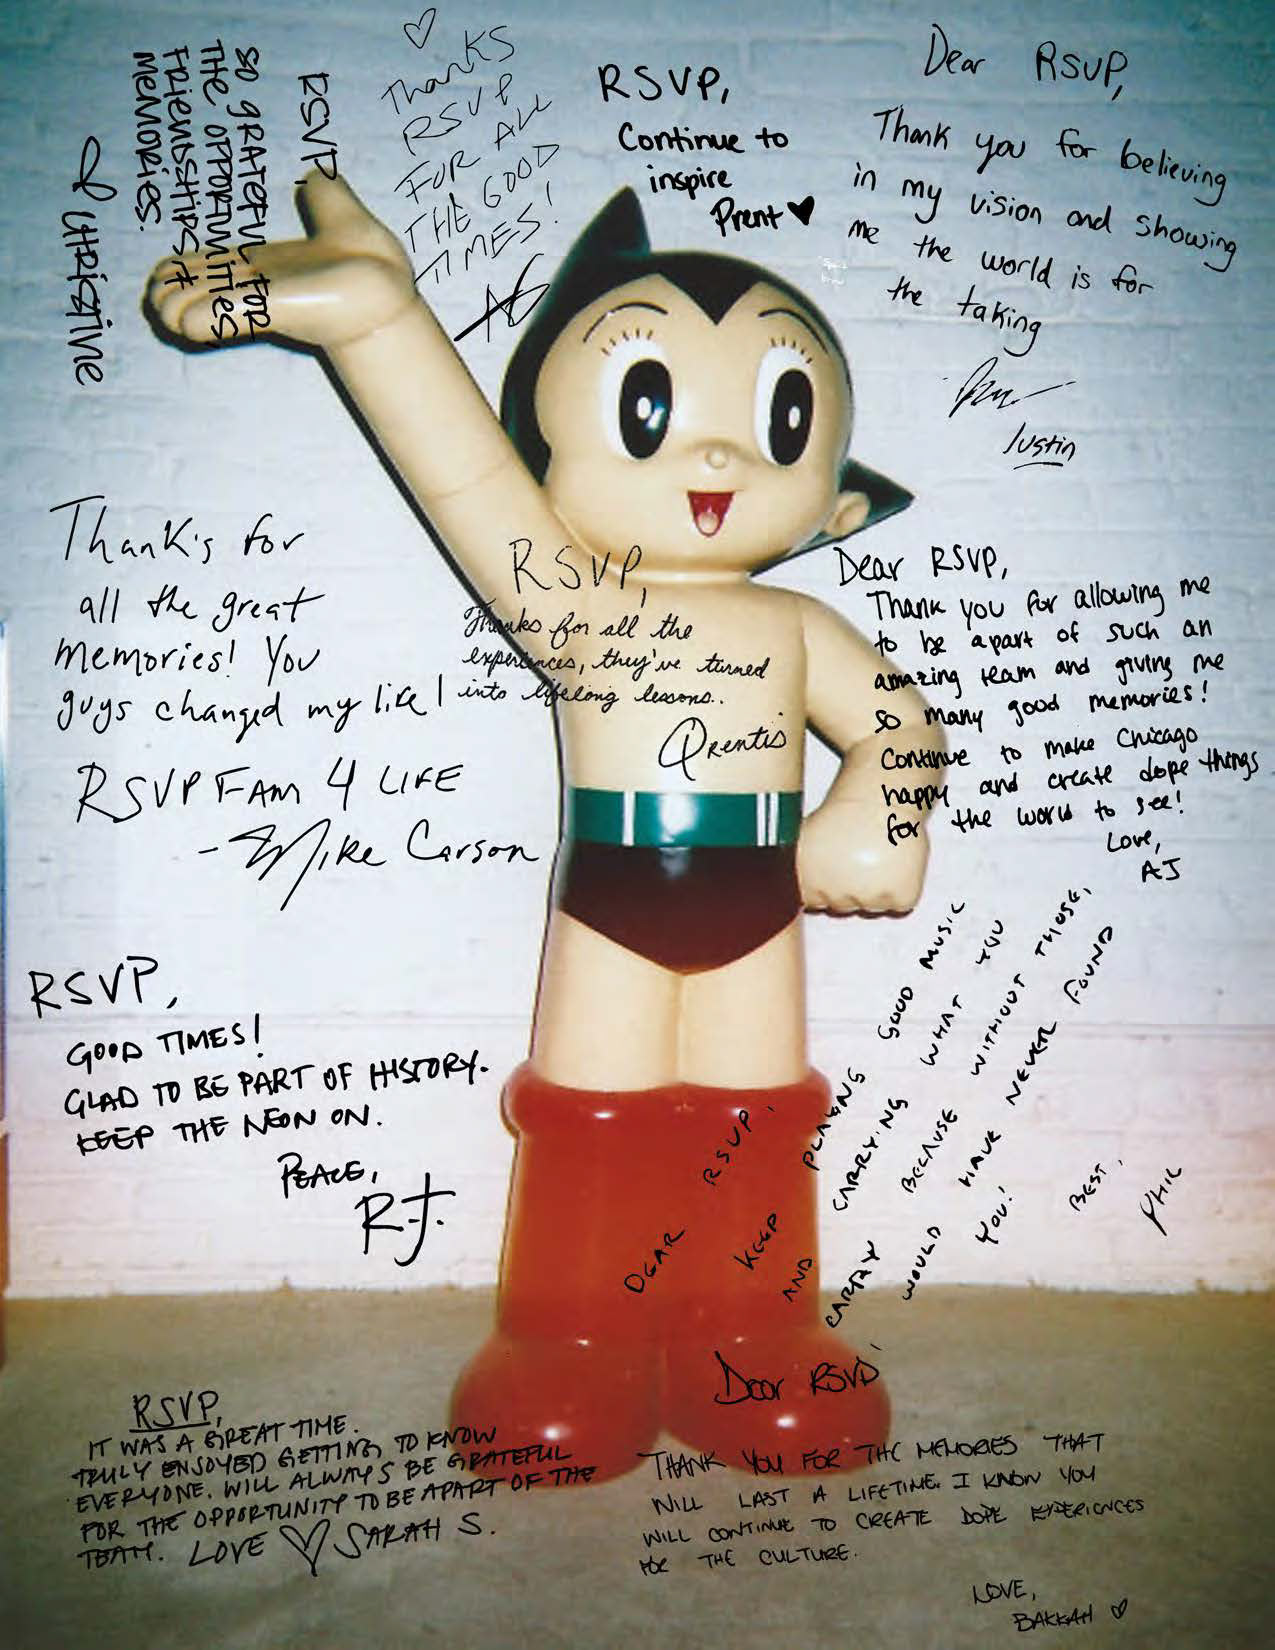 RSVP,
SO GRATEFUL FOR
THE OPPORTUNITIES,
FRIENDSHIPS &
MEMORIES.
CHRISTINE
Thanks
RSVP
FOR ALL
THE GOOD
TIMES!
RSVP,
Continue to
inspire
Prent
Dear RSVP,
Thank you for believing
in my vision and showing
me the world is for
the taking
Justin
Thank's for
all the great
memories! You
guys changed my life!
RSVP FAM 4 LIFE
- Mike Carson
RSVP,
Thanks for all the
experiences, they've turned
into lifelong lessons..
Qrentis
Dear RSVP,
Thank you for allowing me
to be apart of such an
amazing team and giving me
so many good memories!
Continue to make Chicago
happy and create dope things
for the world to see!
Love,
AJ
RSVP,
GOOD TIMES!
GLAD TO BE PART OF HISTORY.
KEEP THE NEON ON.
PEACE,
R.J.
DEAR RSVP,
KEEP PLAYING GOOD MUSIC
AND CARRYING WHAT YOU
CARRY BECAUSE WITHOUT THOSE,
WOULD HAVE NEVER FOUND
YOU!
BEST,
PHIL
RSVP,
IT WAS A GREAT TIME.
TRULY ENJOYED GETTING TO KNOW
EVERYONE. WILL ALWAYS BE GRATEFUL
FOR THE OPPORTUNITY TO BE APART OF THE
TEAM. LOVE ♡ SARAH S.
Dear RSVP,
THANK YOU FOR THE MEMORIES THAT
WILL LAST A LIFETIME. I KNOW YOU
WILL CONTINUE TO CREATE DOPE EXPERIENCES
FOR THE CULTURE.
LOVE,
BAKKAH ♡